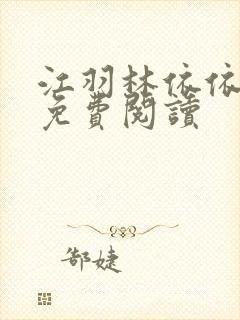 江羽林依依
免費閱讀
郜婕